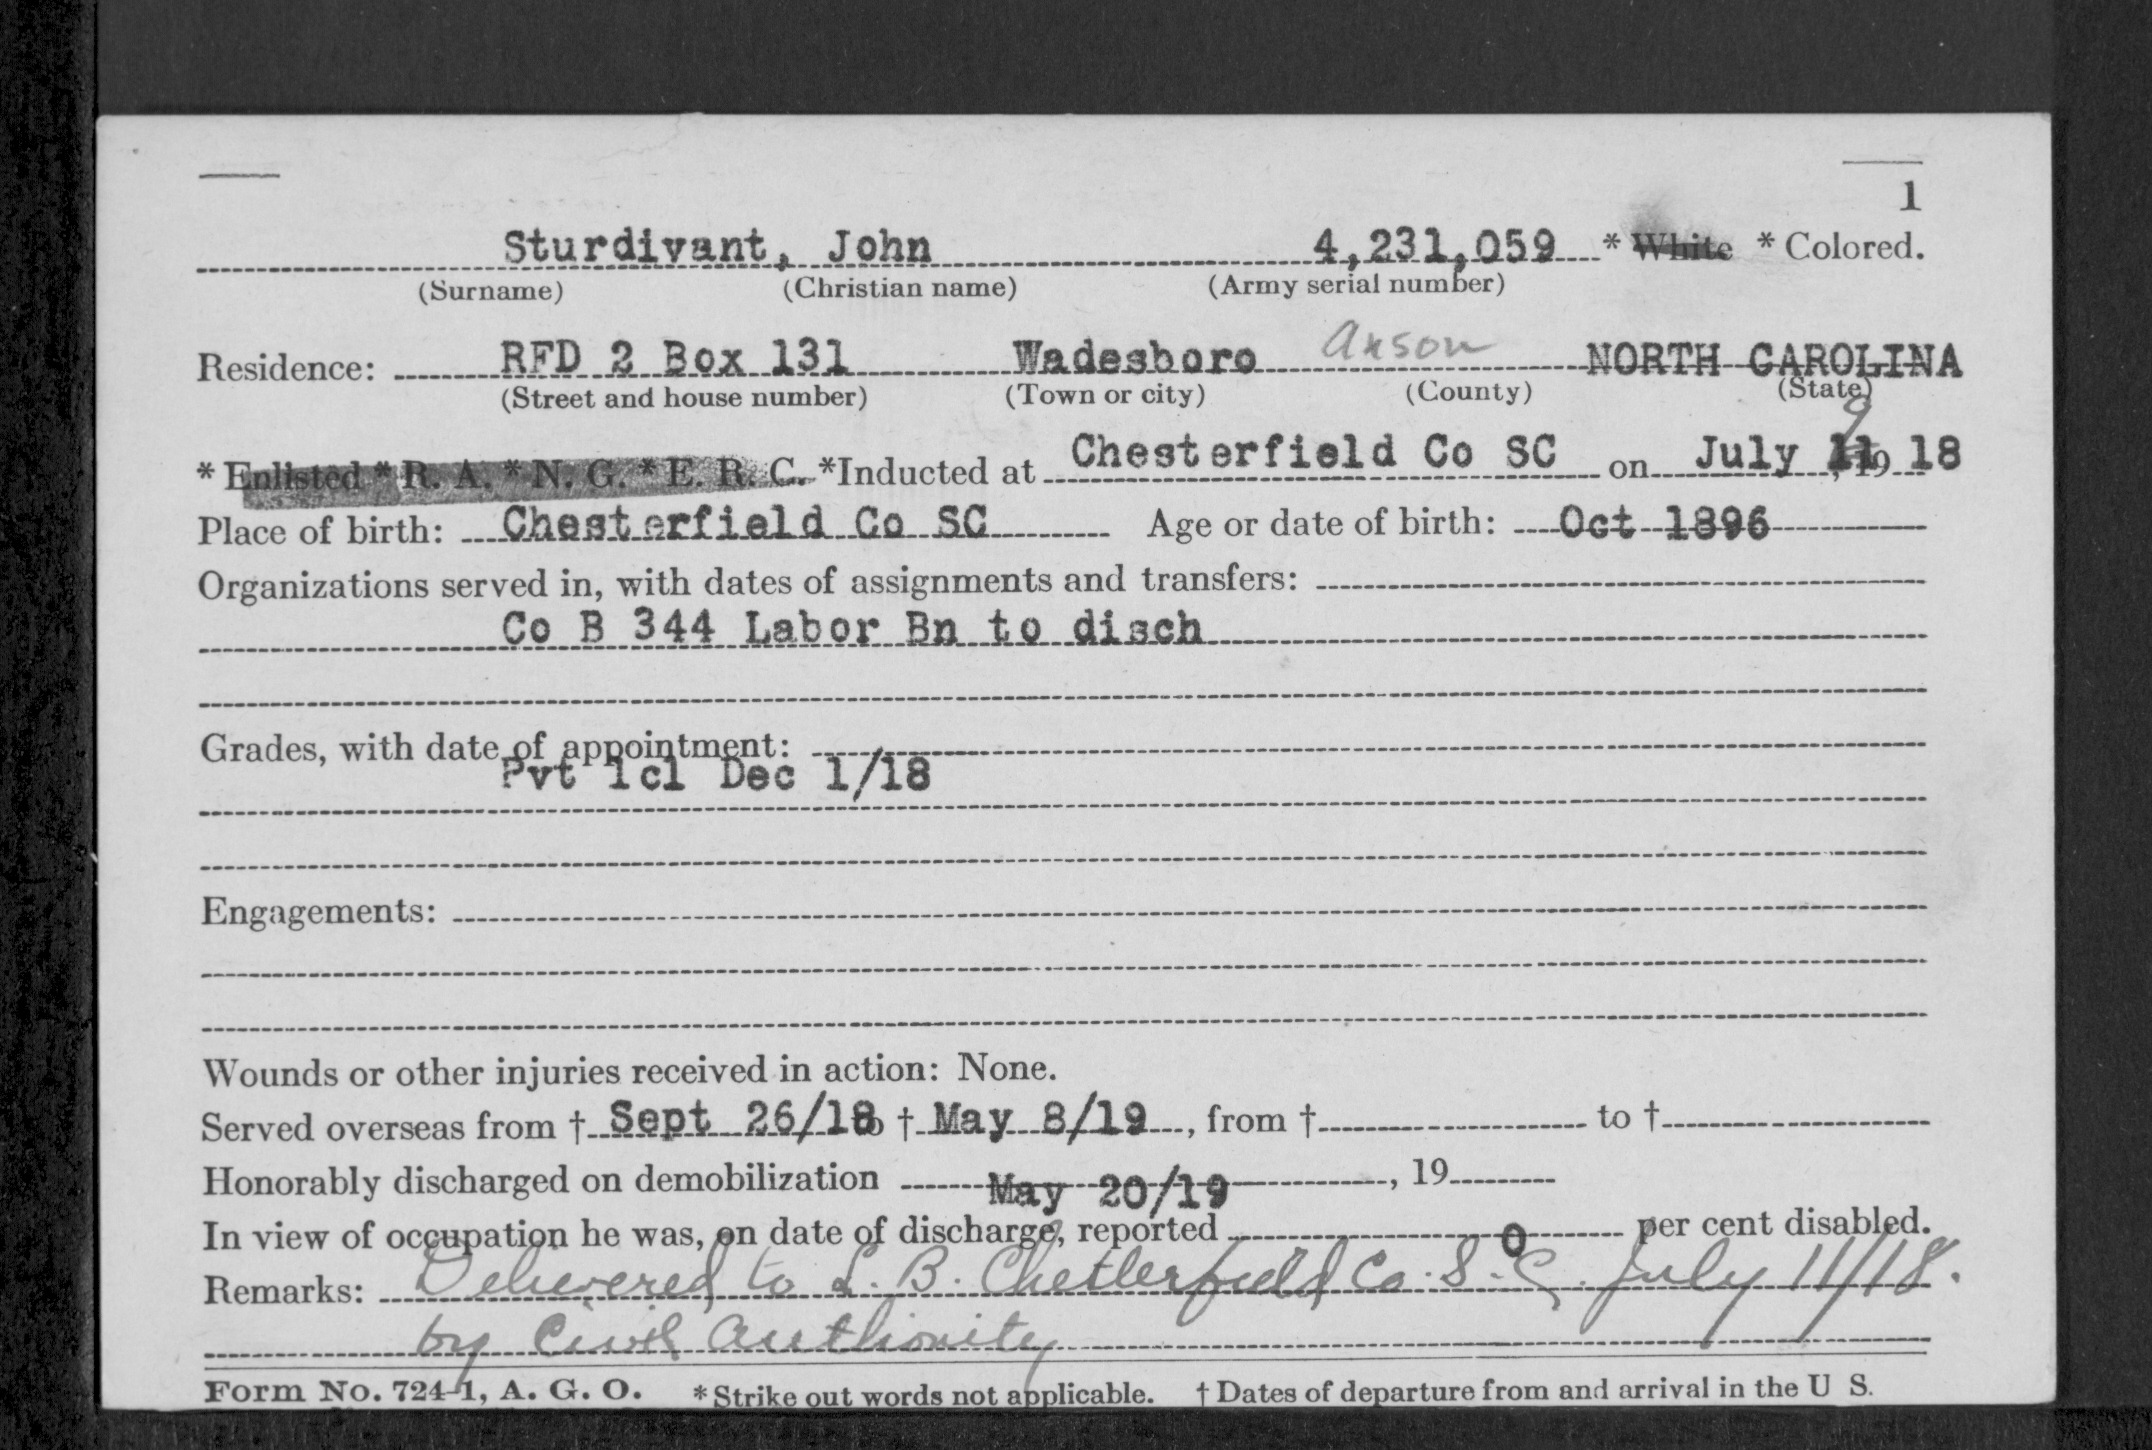 1
Sturdivant, John 4,231,059 * White * Colored.
(Surname) (Christian name) (Army serial number)
Residence: RFD 2 Box 131 Wadesboro Anson NORTH CAROLINA
(Street and house number) (Town or city) (County) (State)
9
* Enlisted * R. A. * N. G. * E. R. C. *Inducted at Chesterfield Co SC on July 11, 19 18
Place of birth: Chesterfield Co SC Age or date of birth: Oct 1896
Organizations served in, with dates of assignments and transfers:
Co B 344 Labor Bn to disch
Grades, with date of appointment:
Pvt 1cl Dec 1/18
Engagements:
Wounds or other injuries received in action: None.
Served overseas from † Sept 26/18 to † May 8/19, from † to †
Honorably discharged on demobilization May 20/19, 19
In view of occupation he was, on date of discharge, reported 0 per cent disabled.
Remarks: Delivered to L. B. Chesterfield Co. S. C. July 11/18.
by Civil Authority
Form No. 724-1, A. G. O. * Strike out words not applicable. † Dates of departure from and arrival in the U S.